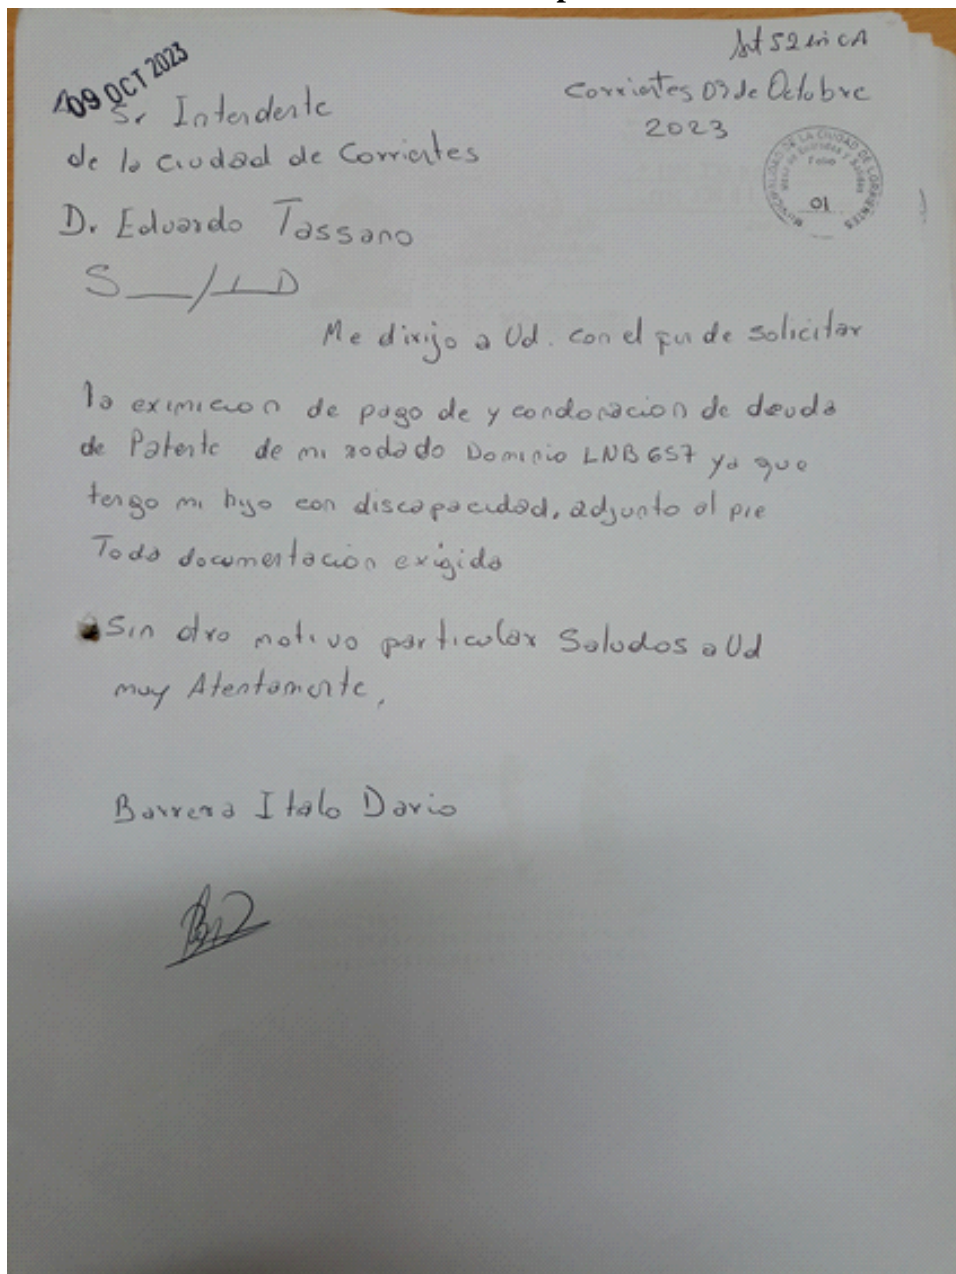 Art 52 inc A
09 OCT 2023
Corrientes 03 de Octubre
2023
Sr Intendente
de la Ciudad de Corrientes
D. Eduardo Tassano
S__/__D
MUNICIPALIDAD DE LA CIUDAD DE CORRIENTES
Mesa de Entradas y Salidas
Folio
01
Me dirijo a Ud. con el fin de solicitar
la eximicion de pago de y condonacion de deuda
de Patente de mi rodado Dominio LNB 657 ya que
tengo mi hijo con discapacidad, adjunto al pie
Toda documentacion exigida
Sin otro motivo particular Saludos a Ud
muy Atentamente,
Barrera Italo Dario